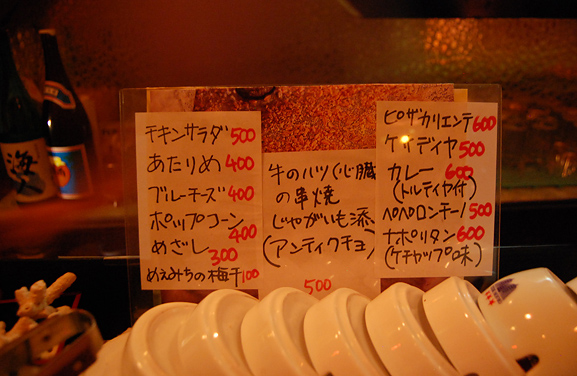 チキンサラダ500
あたりめ400
ブルーチーズ400
ポップコーン
400
めざし
300
めぇみちの梅干100
牛のハツ(心臓)
の串焼
じゃがいも添
(アンティクチョ)
500
ピザカリエンテ600
ケサディヤ500
カレー600
(トルティヤ付)
ペペロンチーノ500
ナポリタン600
(ケチャップ味)